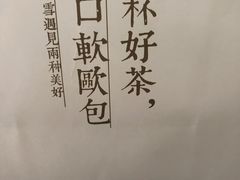 杯好茶，
口軟歐包
雪遇見兩种美好